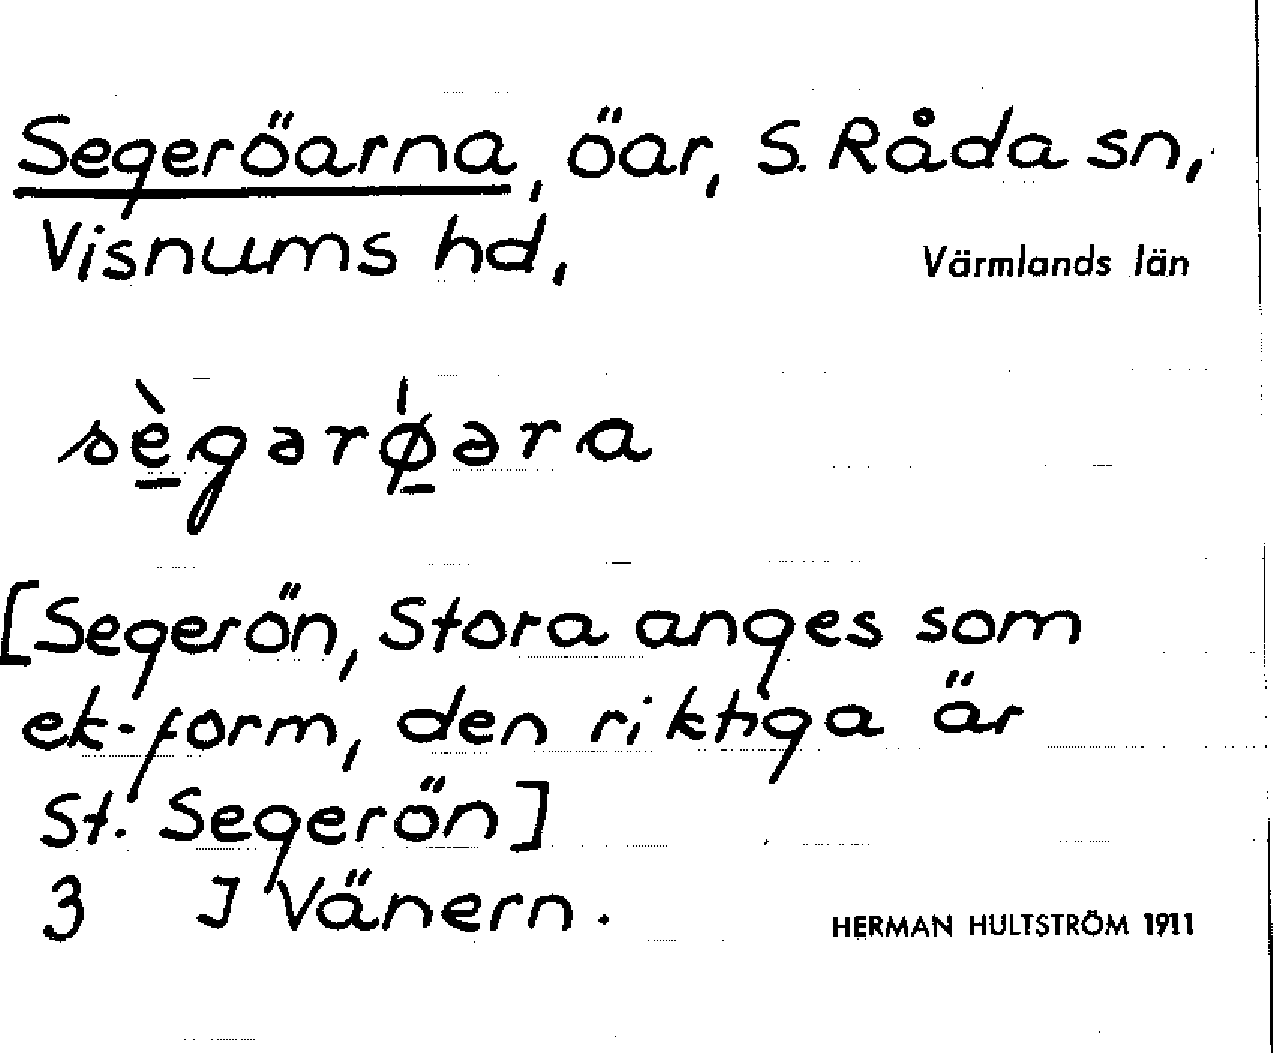 Segeröarna, öar, S. Råda sn,
Visnums hd, Värmlands län
sè̲gərǿ̲əra
[Segerön, Stora anges som
ek-form, den riktiga är
St. Segerön]
3 I Vänern.
HERMAN HULTSTRÖM 1911